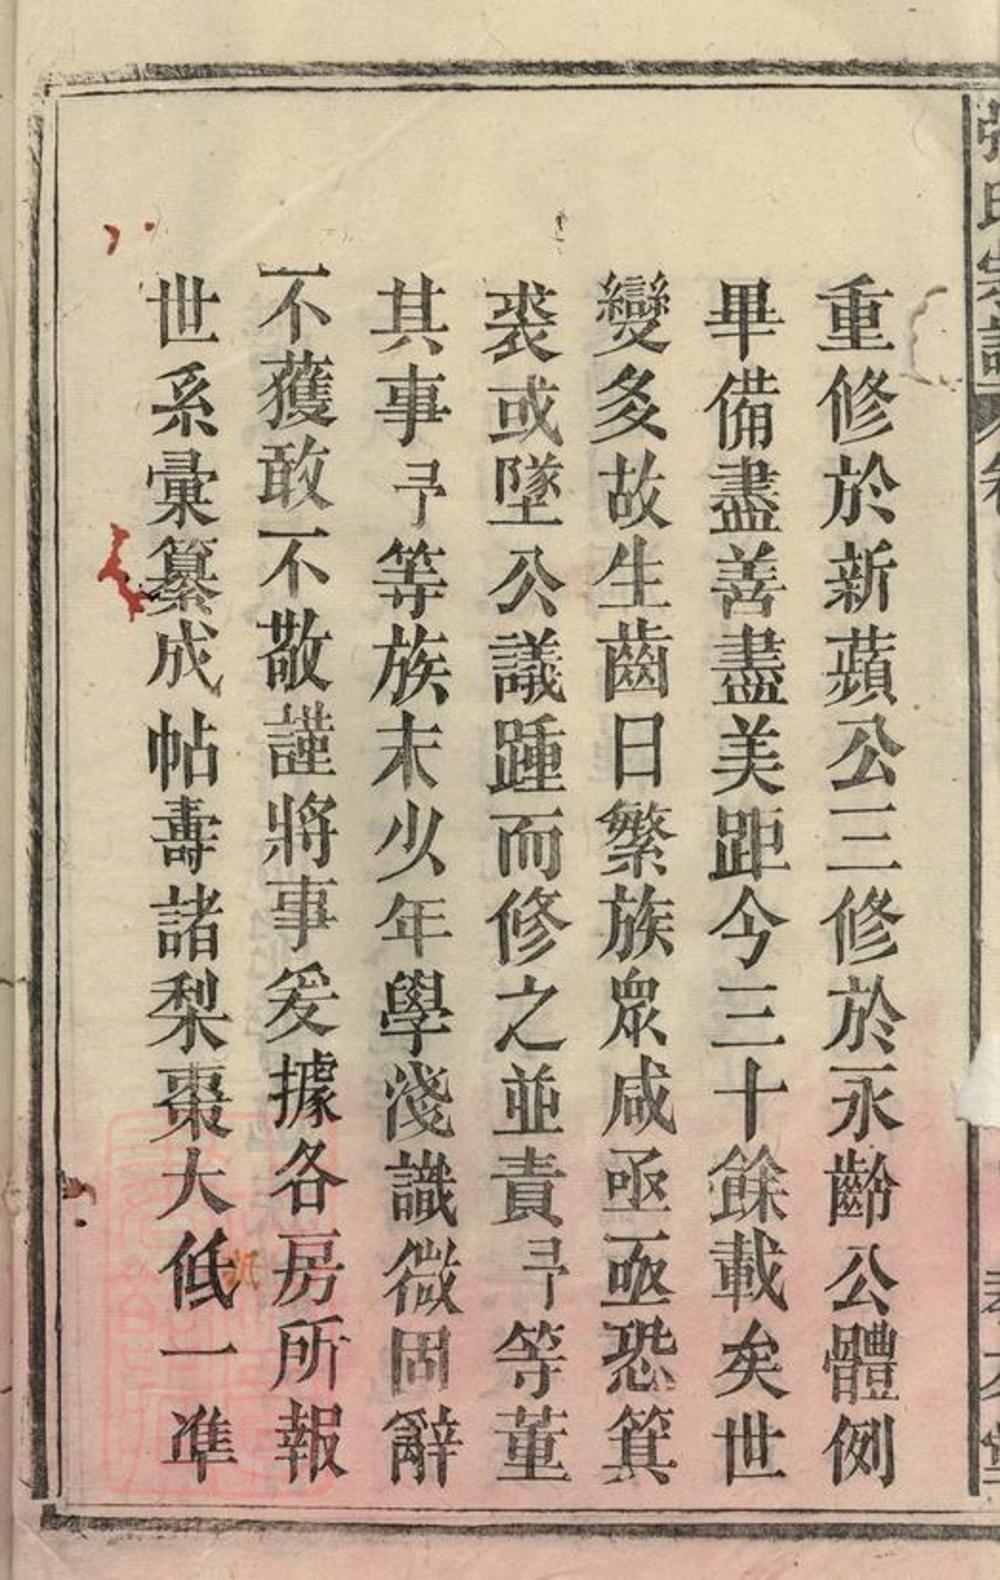 張氏宗譜
重修於新蘋公三修於永齡公體例
畢備盡善盡美距今三十餘載矣世
變多故生齒日繁族眾咸亟亟恐箕
裘或墜公議踵而修之並責予等董
其事予等族末少年學淺識微固辭
不獲敢不敬謹將事爰據各房所報
世系彙纂成帖壽諸梨棗大低一準